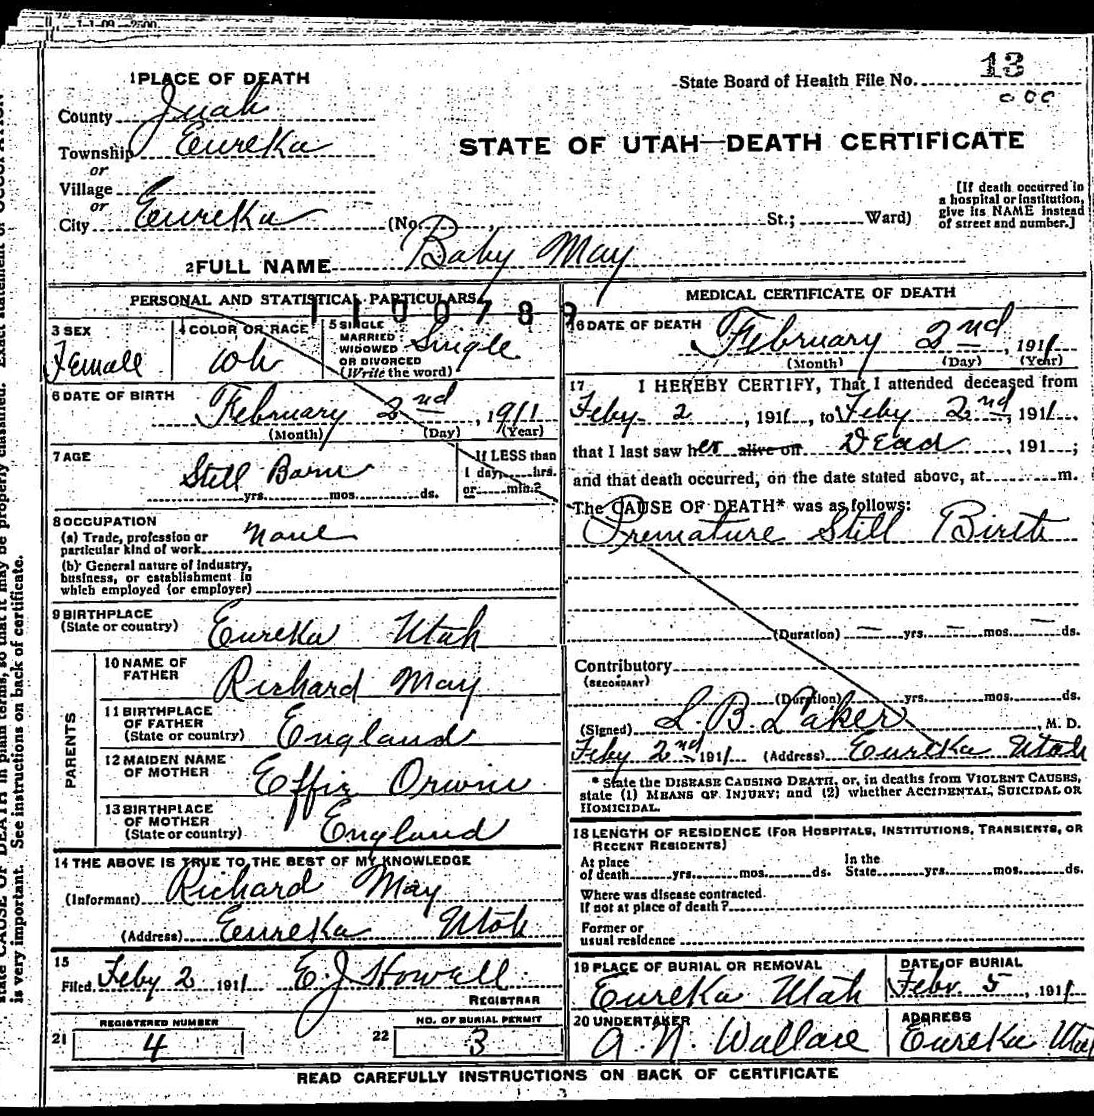 1-1-09-2500
1 PLACE OF DEATH
State Board of Health File No. 13
County Juab
Township Eureka
or
STATE OF UTAH—DEATH CERTIFICATE
Village
or
City Eureka (No. , St.; Ward)
[If death occurred in
a hospital or institution,
give its NAME instead
of street and number.]
2 FULL NAME Baby May
1100789
PERSONAL AND STATISTICAL PARTICULARS
3 SEX
Female
4 COLOR OR RACE
Wh
5 SINGLE
MARRIED
WIDOWED
OR DIVORCED
(Write the word)
Single
6 DATE OF BIRTH
February 2nd, 1911
(Month) (Day) (Year)
7 AGE
Still Born
yrs. mos. ds.
If LESS than
1 day, hrs.
or min.?
8 OCCUPATION
(a) Trade, profession or
particular kind of work None
(b) General nature of industry,
business, or establishment in
which employed (or employer)
9 BIRTHPLACE
(State or country) Eureka Utah
PARENTS
10 NAME OF
FATHER Richard May
11 BIRTHPLACE
OF FATHER
(State or country) England
12 MAIDEN NAME
OF MOTHER Effie Orwin
13 BIRTHPLACE
OF MOTHER
(State or country) England
14 THE ABOVE IS TRUE TO THE BEST OF MY KNOWLEDGE
(Informant) Richard May
(Address) Eureka Utah
15
Filed Feby 2 1911 E J Howell
REGISTRAR
REGISTERED NUMBER
21 4
NO. OF BURIAL PERMIT
22 3
MEDICAL CERTIFICATE OF DEATH
16 DATE OF DEATH
February 2nd, 1911
(Month) (Day) (Year)
17 I HEREBY CERTIFY, That I attended deceased from
Feby 2, 1911, to Feby 2nd, 1911,
that I last saw her alive on Dead, 191 ;
and that death occurred, on the date stated above, at m.
The CAUSE OF DEATH* was as follows:
Premature Still Birth
(Duration) — yrs. — mos. — ds.
Contributory
(SECONDARY)
(Duration) yrs. mos. ds.
(Signed) L. B. Laker M. D.
Feby 2nd 1911 (Address) Eureka Utah
* State the DISEASE CAUSING DEATH, or, in deaths from VIOLENT CAUSES,
state (1) MEANS OF INJURY; and (2) whether ACCIDENTAL, SUICIDAL OR
HOMICIDAL.
18 LENGTH OF RESIDENCE (FOR HOSPITALS, INSTITUTIONS, TRANSIENTS, OR
RECENT RESIDENTS)
At place
of death yrs. mos. ds.
In the
State yrs. mos. ds.
Where was disease contracted
if not at place of death?
Former or
usual residence
19 PLACE OF BURIAL OR REMOVAL
Eureka Utah
DATE OF BURIAL
Febr. 5, 1911
20 UNDERTAKER
A. N. Wallace
ADDRESS
Eureka Utah
READ CAREFULLY INSTRUCTIONS ON BACK OF CERTIFICATE
state CAUSE OF DEATH in plain terms, so that it may be properly classified. Exact statement of OCCUPATION
is very important. See instructions on back of certificate.